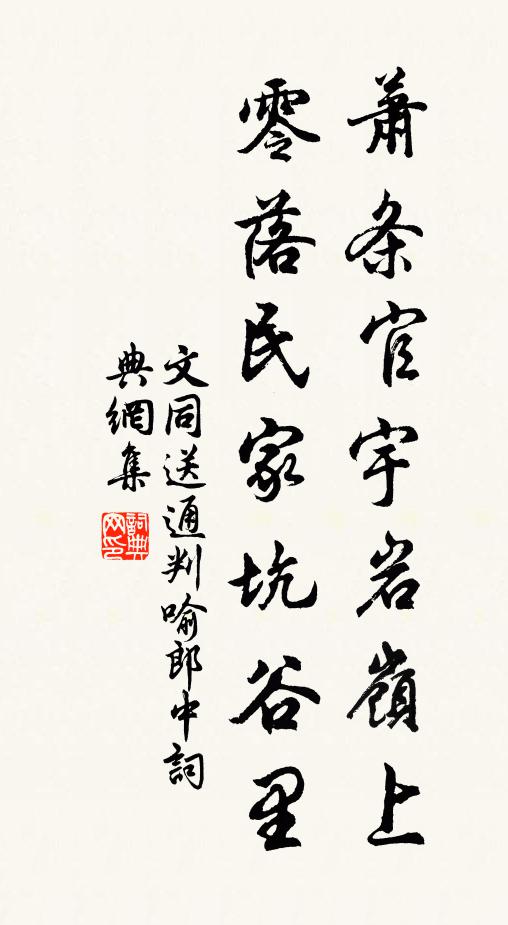 萧条官宇岩嶺上
零落民家坑谷里
文同送通判喻郎中詞
典網集
詞典网印